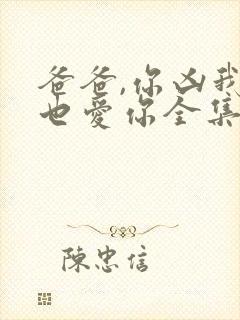 爸爸,你凶我
也愛你全集
陳忠信